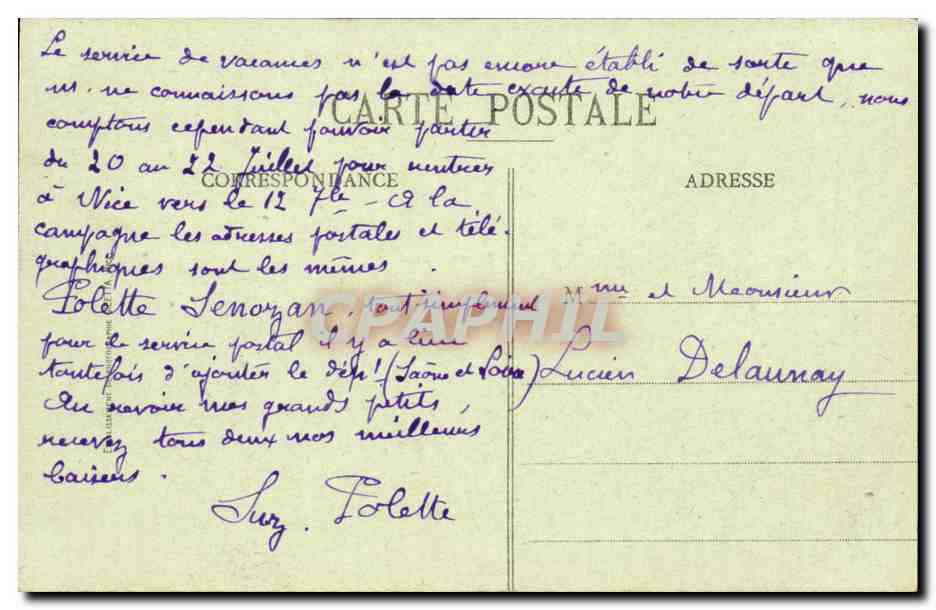 Le service de vacances n'est pas encore établi de sorte que
ns. ne connaissons pas la date exacte de notre départ, nous
CARTE POSTALE
comptons cependant pouvoir partir
du 20 au 22 Juillet pour rentrer
CORRESPONDANCE
ADRESSE
à Nice vers le 12 7bre - à la
campagne les adresses postales et télé-
graphiques sont les mêmes.
Polette Senozan, tout simplement
pour le service postal il y a lieu
toutefois d'ajouter le dépt (Saône et Loire)
Au revoir mes grands petits,
recevez tous deux nos meilleurs
baisers.
Suz. Polette
Mme et Monsieur
Lucien Delaunay
CPAPHIL